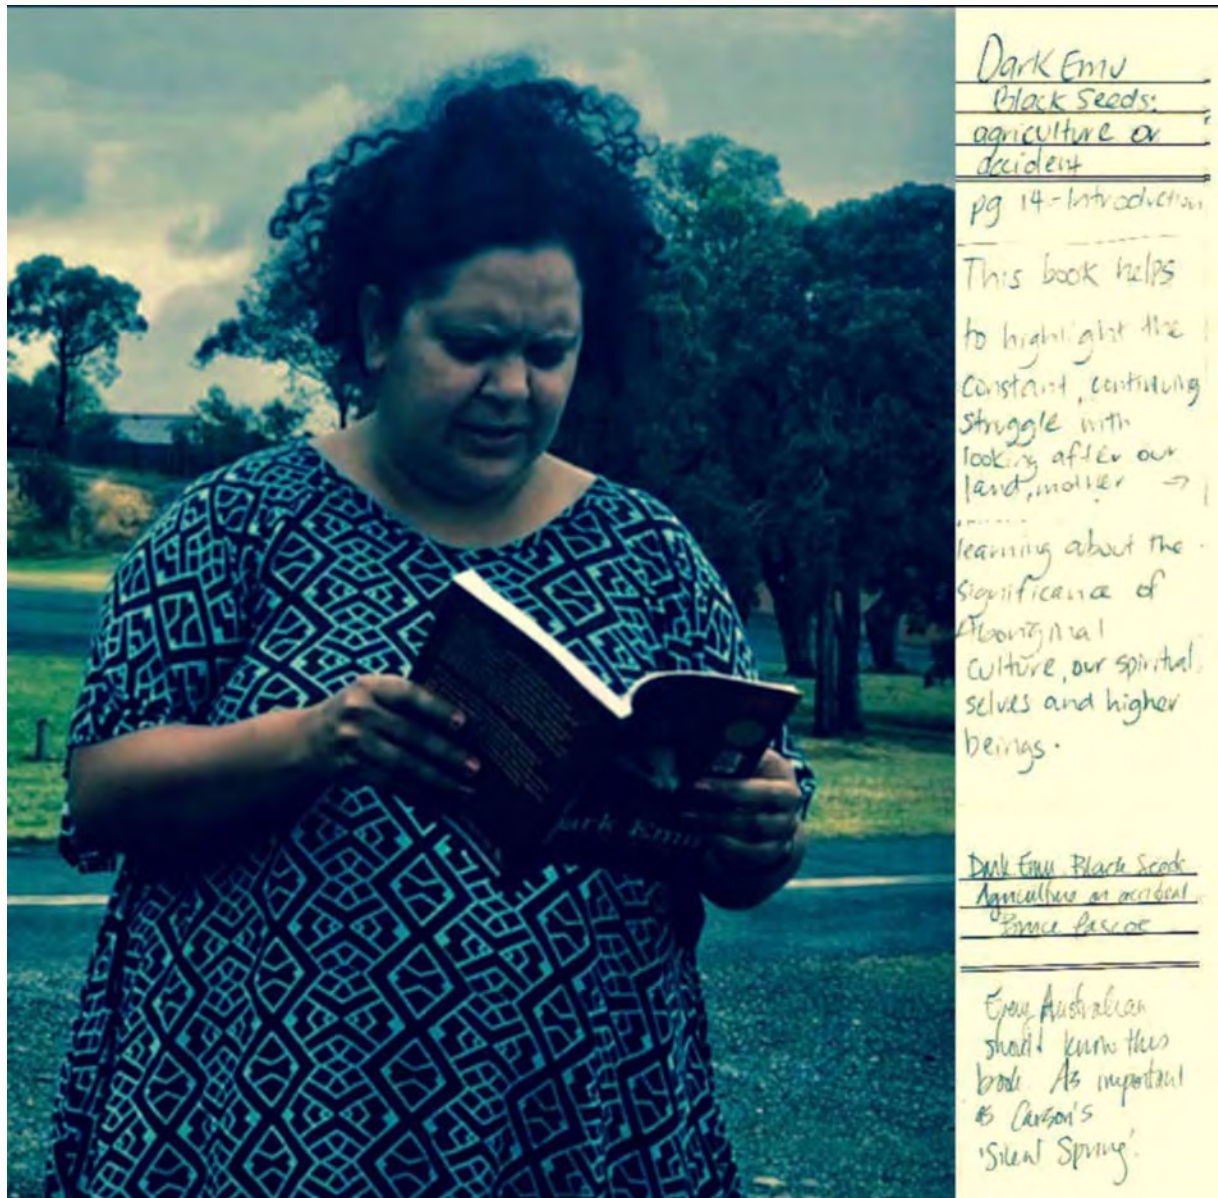 Dark Emu
Dark Emu
Black Seeds:
agriculture or
accident
pg 14 - Introduction
This book helps
to highlight the
constant, continuing
struggle with
looking after our
land, mother →
learning about the
significance of
Aboriginal
culture, our spiritual
selves and higher
beings.
Dark Emu Black Seeds
Agriculture or accident
Bruce Pascoe
Every Australian
should know this
book. As important
as Carson's
'Silent Spring'.